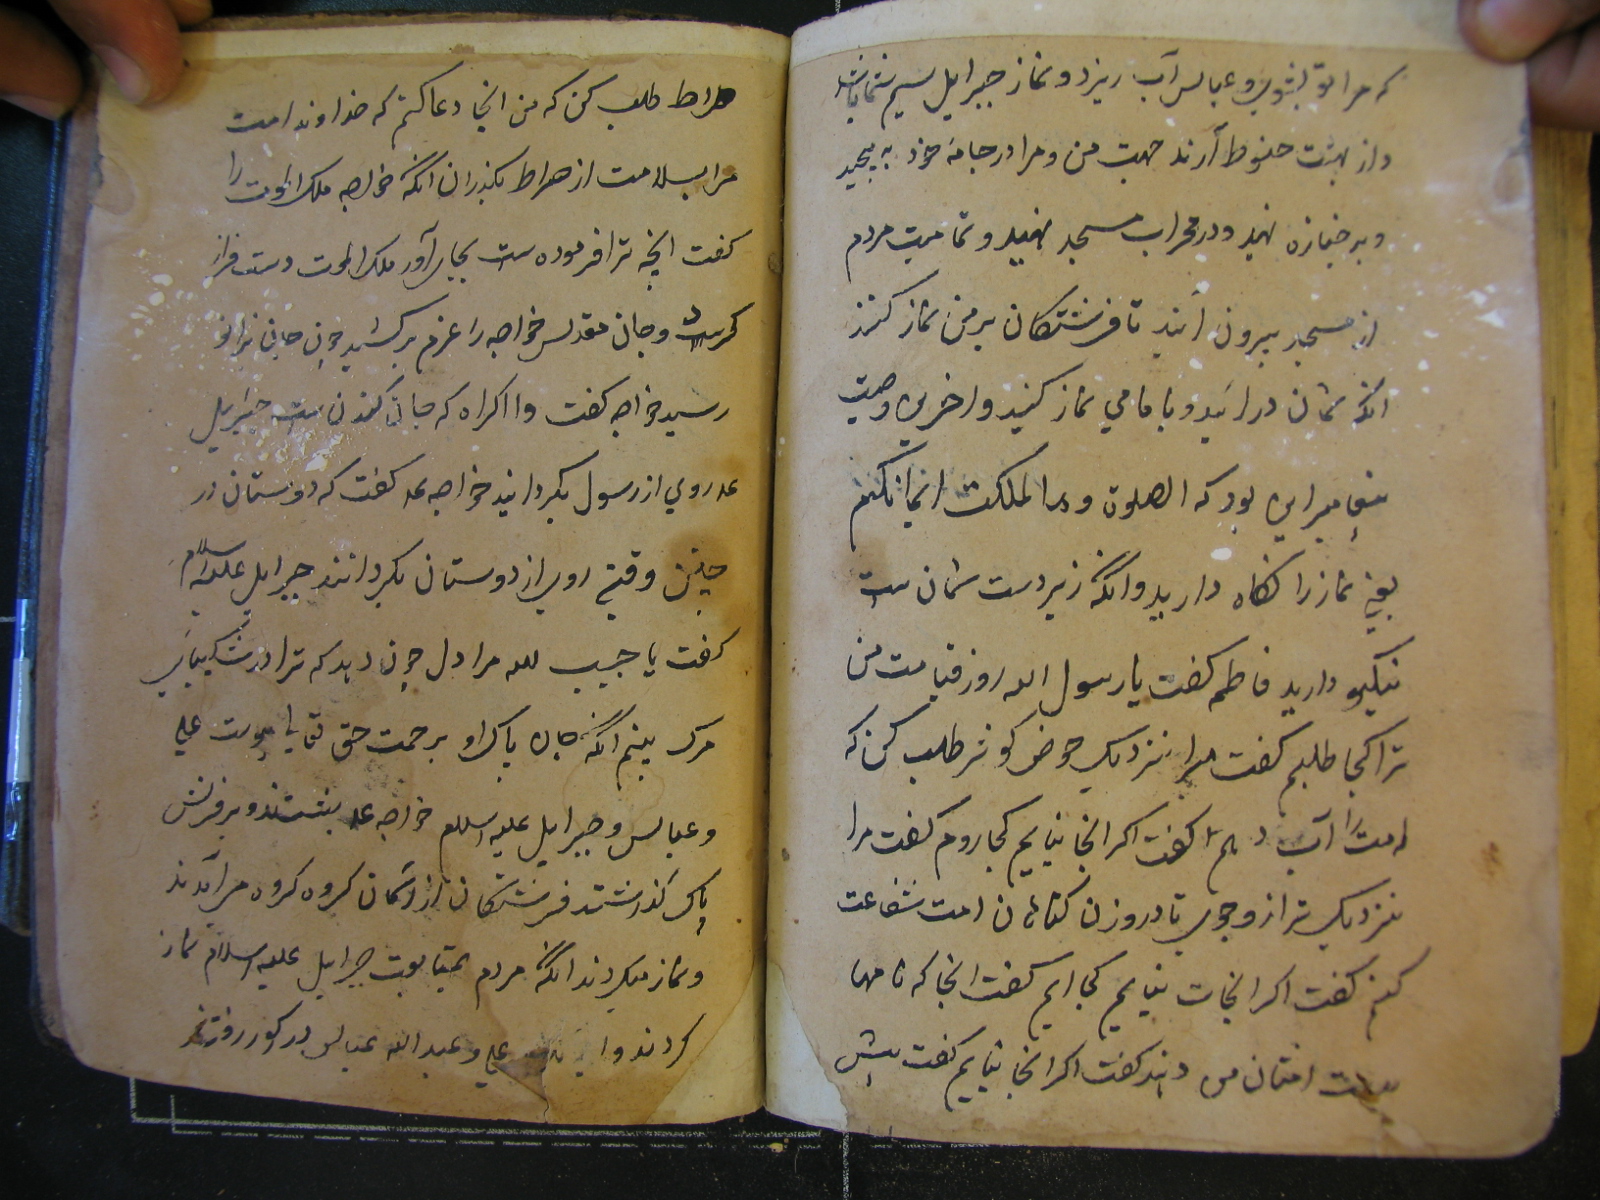 که مرا تو بشوی و عباس آب ریزد و نماز جبرایل سیم شما باشد
و از بهشت حنوط آرند جهت من و مرا در جامه خود به پیچید
و بر جنازه نهید و در محراب مسجد نهید و تمامیت مردم
از مسجد بیرون آیند تا فرشتکان بر من نماز کنند
انکه شمان درائید و با مامی نماز کنید و اخرین وصیت
پیغامبر این بود که الصلوة و ما ملکت ایمانکم
یعنی نماز را نکاه دارید وانکه زیر دست شمان ست
نیکو دارید فاطمه کفت یا رسول الله روز قیامت من
ترا کجا طلبم کفت مرا نزدیک حوض کوثر طلب کن که
امت را آب دهم کفت اکر انجا نیایم کجا روم کفت مرا
نزدیک ترازو جوی تا در وزن کناهان امت شفاعت
کنم کفت اکر انجات نیابم کجا ایم کفت انجا که نامها
بدست امتان من دهند کفت اکر انجا نیابم کفت پیش
صراط طلب کن که من انجا دعا کنم که خداوندا امت
مرا بسلامت از صراط بکذران انکه خواجه ملک الموت را
کفت انچه ترا فرموده ست بجای آور ملک الموت دست فراز
کرد و جان مقدس خواجه را عزم برکشید چون جان بزانو
رسید خواجه کفت وا اکراه که جان کندن ست جبرایل
عه روی از رسول بکردانید خواجه عه کفت که دوستان در
چنین وقتی روی از دوستان بکردانند جبرایل علیه السلام
کفت یا حبیب الله مرا دل چون دهد که ترا در شکیبایی
مرک بینم انکه جان پاک او برحمت حق تعالی پیوست علی
و عباس و جبرایل علیه السلام خواجه عه بشستند و بر فرش
پاک کذاشتند فرشتکان از آسمان کروه کروه می آمدند
و نماز میکردند انکه مردم بمتابعت جبرایل علیه السلام نماز
کردند و علی و عبد الله عباس در کور رفتند